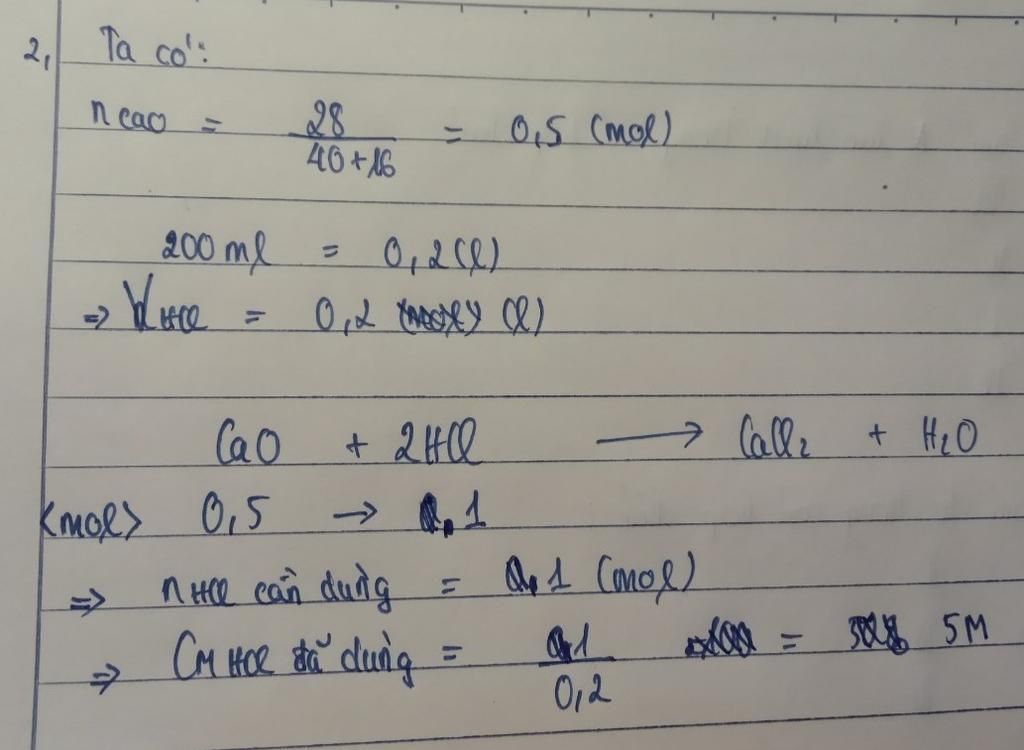 2, Ta có:
nCaO = 28 / 40+16 = 0,5 (mol)
200 ml = 0,2 (l)
=> VHCl = 0,2 (l)
CaO + 2HCl → CaCl2 + H2O
<mol> 0,5 → 1
=> nHCl cần dùng = 1 (mol)
=> CM HCl đã dùng = 1 / 0,2 = 5M